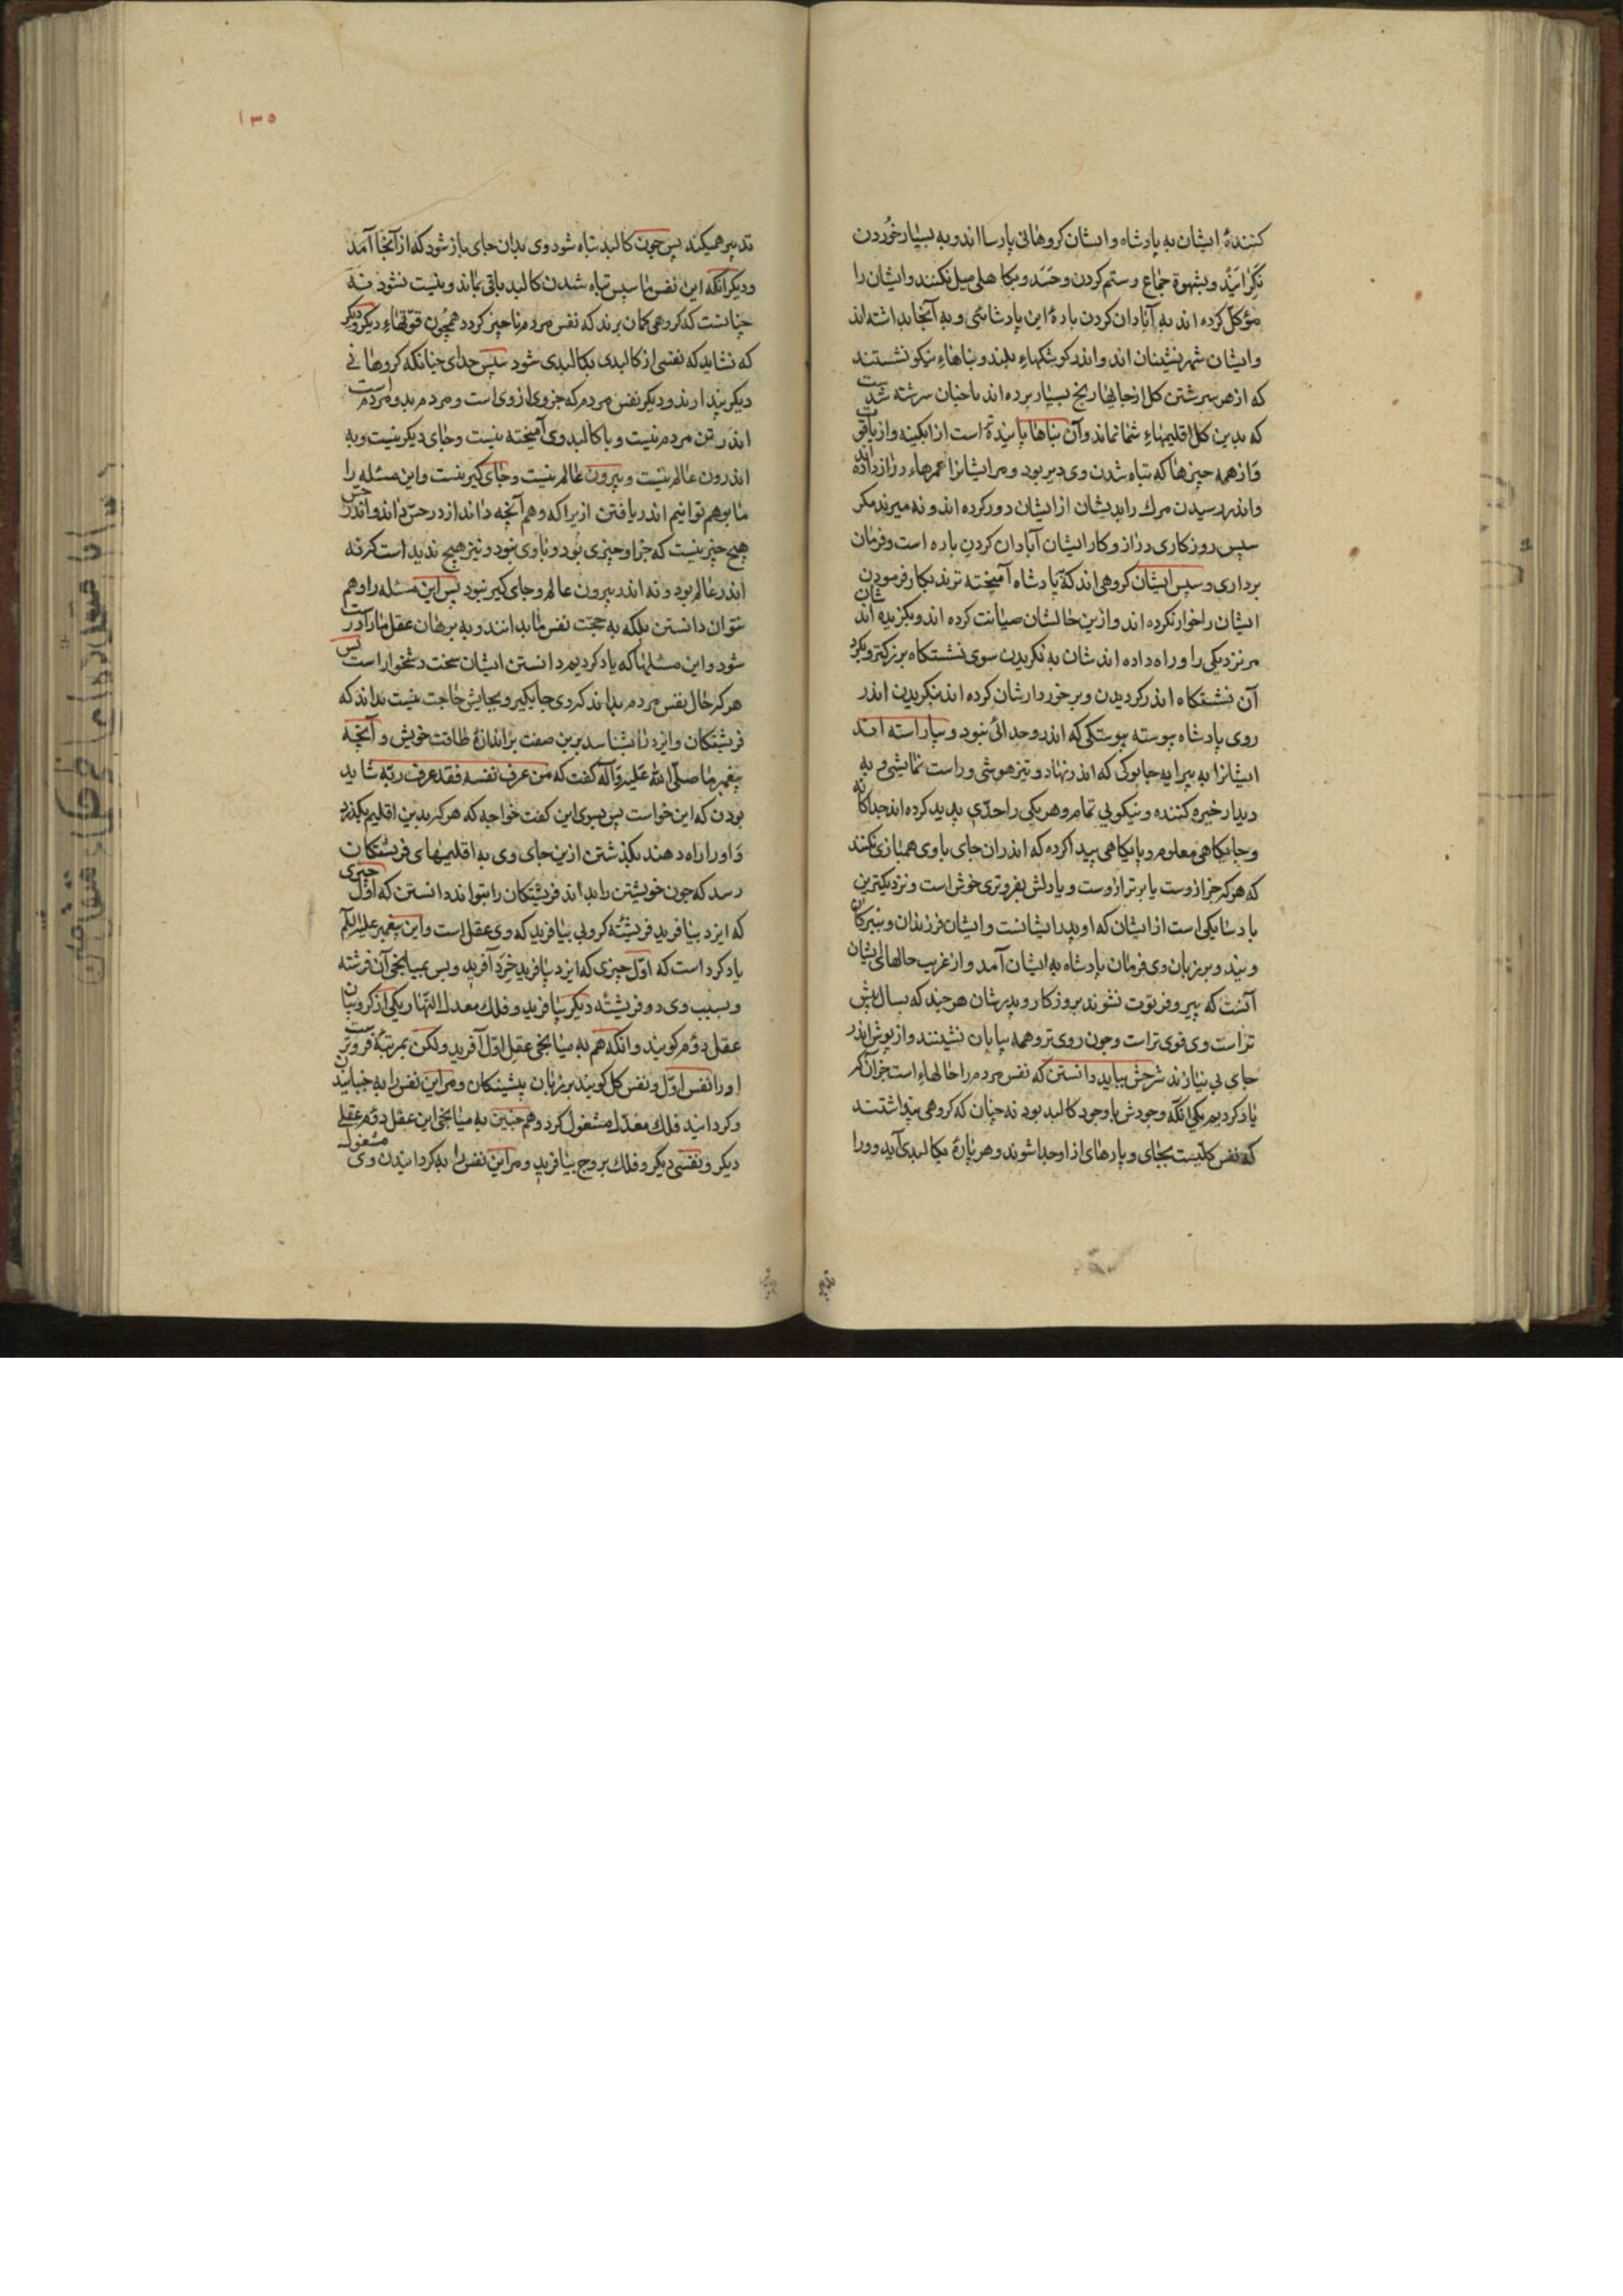 کنندهٔ ایشان به پادشاه و ایشان کروهانی پارسااند و به بسیار خوردن
نکرایند و بشهوة جماع و ستم کردن و حسد و بکاهلی میل نکنند و ایشان را
مؤکل کرده اند به آبادان کردن بارهٔ این پادشائی و به آنجا بداشته اند
و ایشان شهرنشینان اند و اندر کوشکهاء بلند و بناهاء نیکو نشستند
که از هر سرشتن کل از جایها رنج بسیار برده اند تا چنان سرشته شدست
که بدین کل اقلیمهاء شما نماند و آن بناها پاینده تر است از ابکینه و از یاقوت
و از همه چیزها که تباه شدن وی دیر بود و مر ایشانرا عمرهاء دراز داده اند
و اندر رسیدن مرك را بدیشان از ایشان دور کرده اند و نه میرند مکر
سپس روزکاری دراز و کار ایشان آبادان کردن باره است و فرمان
برداری و سپس ایشان کروهی اند که به پادشاه آمیخته ترند بکار فرمودن شان
ایشان را خوار نکرده اند و ازین حالشان صیانت کرده اند و بکزیده اند
مر نزدیکی را و راه داده اند شان به نکریدن سوی نشستکاه بزرکتر و بکرد
آن نشستکاه اندر کردیدن و برخوردارشان کرده اند بنکریدن اندر
روی پادشاه پیوسته پیوستکی که اندرو جدائی نبود و بیاراسته اند
ایشانرا به پیرایه چابوکی که اندر نهاد و تیز هوشی و راست نمایشی و به
دیدار خیره کننده و نیکویی تمام و هر یکی را حدّی پدید کرده اند جداکانه
و جایکاهی معلوم و پایکاهی پیدا کرده که اندران جای با وی همبازی نکنند
که هر که جز ازوست یا برتر ازوست و یا دلش بفروتری خوش است و نزدیکترین
پادشا یکی است از ایشان که او پدر ایشانست و ایشان فرزندان و نبیرکان
ویند و بر زبان وی فرمان پادشاه به ایشان آمد و از غریب حالهای ایشان
آنست که پیر و فرتوت نشوند بروزکار و پدرشان هر چند که بسال بیش
تر است وی قوی تر است و چون روی تر و همه بیابان نشینند و از پوشش اندر
جای بی نیازند شرحش بباید دانستن که نفس مردم را حالهاء است جز آن کر
یاد کردیم یکی انکه وجودش با وجود کالبد بود نه چنان که کروهی پنداشتند
که نفس کلیست بجای و پارهای از او جدا شوند و هر پارهٔ بکالبدی آید و ورا
۱۳۵
تدبیر همیکند پس چون کالبد تباه شود وی بدان جای باز شود که از آنجا آمد
و دیکر انکه این نفس ما سپس تباه شدن کالبد باقی بماند و نیست نشود نه
چنانست که کروهی کمان برند که نفس مردم ناچیز کردد همچون قوّتهاء دیکر و دیکر
که نشاید که نفسی از کالبدی بکالبدی شود سپس جدای چنانکه کروهانی
دیکر پندارند و دیکر نفس مردم که جزوی از وی است و مردم بدو مردم است
اندر تن مردم نیست و با کالبد وی آمیخته نیست و جای دیکر نیست و به
اندرون عالم نیست و بیرون عالم نیست و جای کیر نیست و این مسئله را
ما بوهم توانیم اندر یافتن ازیرا که وهم آنچه داند از در حسّ داند و اندر حس
هیچ چیز نیست که جز او چیزی بود و با وی نبود و نیز هیچ ندیداست کر نه
اندر عالم بود و نه اندر بیرون عالم و جای کیر نبود پس این مسئله را وهم
نتوان دانستن بلکه به حجّت نفس ما بدانند و به برهان عقل ما را درست
شود و این مسئلها که یاد کردیم دانستن ایشان سخت دشخوار است پس
هر که حال نفس مردم بداند که وی جایکیر و بجایش حاجت نیست بداند که
فریشتکان و ایزد را بشناسد برین صفت بر اندازهٔ طاقت خویش و آنچه
پیغمبر ما صلّی الله علیه و آله کفت که من عرف نفسه فقد عرف ربّه شاید
بودن که این خواست پس بسوی این کفت خواجه که هر که بدین اقلیم بکذرد
و اورا راه دهند بکذشتن ازین جای وی به اقلیمهای فریشتکان
رسد که چون خویشتن را بداند فریشتکان را بتواند دانستن که اوّل چیزی
که ایزد بیافرید فریشتهٔ کروبی بیافرید که وی عقل است و این پیغمبر علیه السّلم
یاد کرد است که اوّل چیزی که ایزد بیافرید خرد آفرید و پس بمیانجی آن فرشته
و بسبب وی دو فریشتهٔ دیکر بیافرید و فلك معدل النّهار یکی از کروبیان
عقل دوم کویند و انکه هم به میانجی عقل اوّل آفرید ولکن بمرتبهٔ فروتر است
اورا نفس اوّل و نفس کل کویند بر زبان پیشینکان و مر این نفس را به جنبانیدن
و کردانید فلك معدّل مشغول کرد و هم چنین به میانجی این عقل دوم عقلی
دیکر و نفسی دیکر و فلك بروج بیافرید و مر این نفس را به کردانیدن وی مشغول